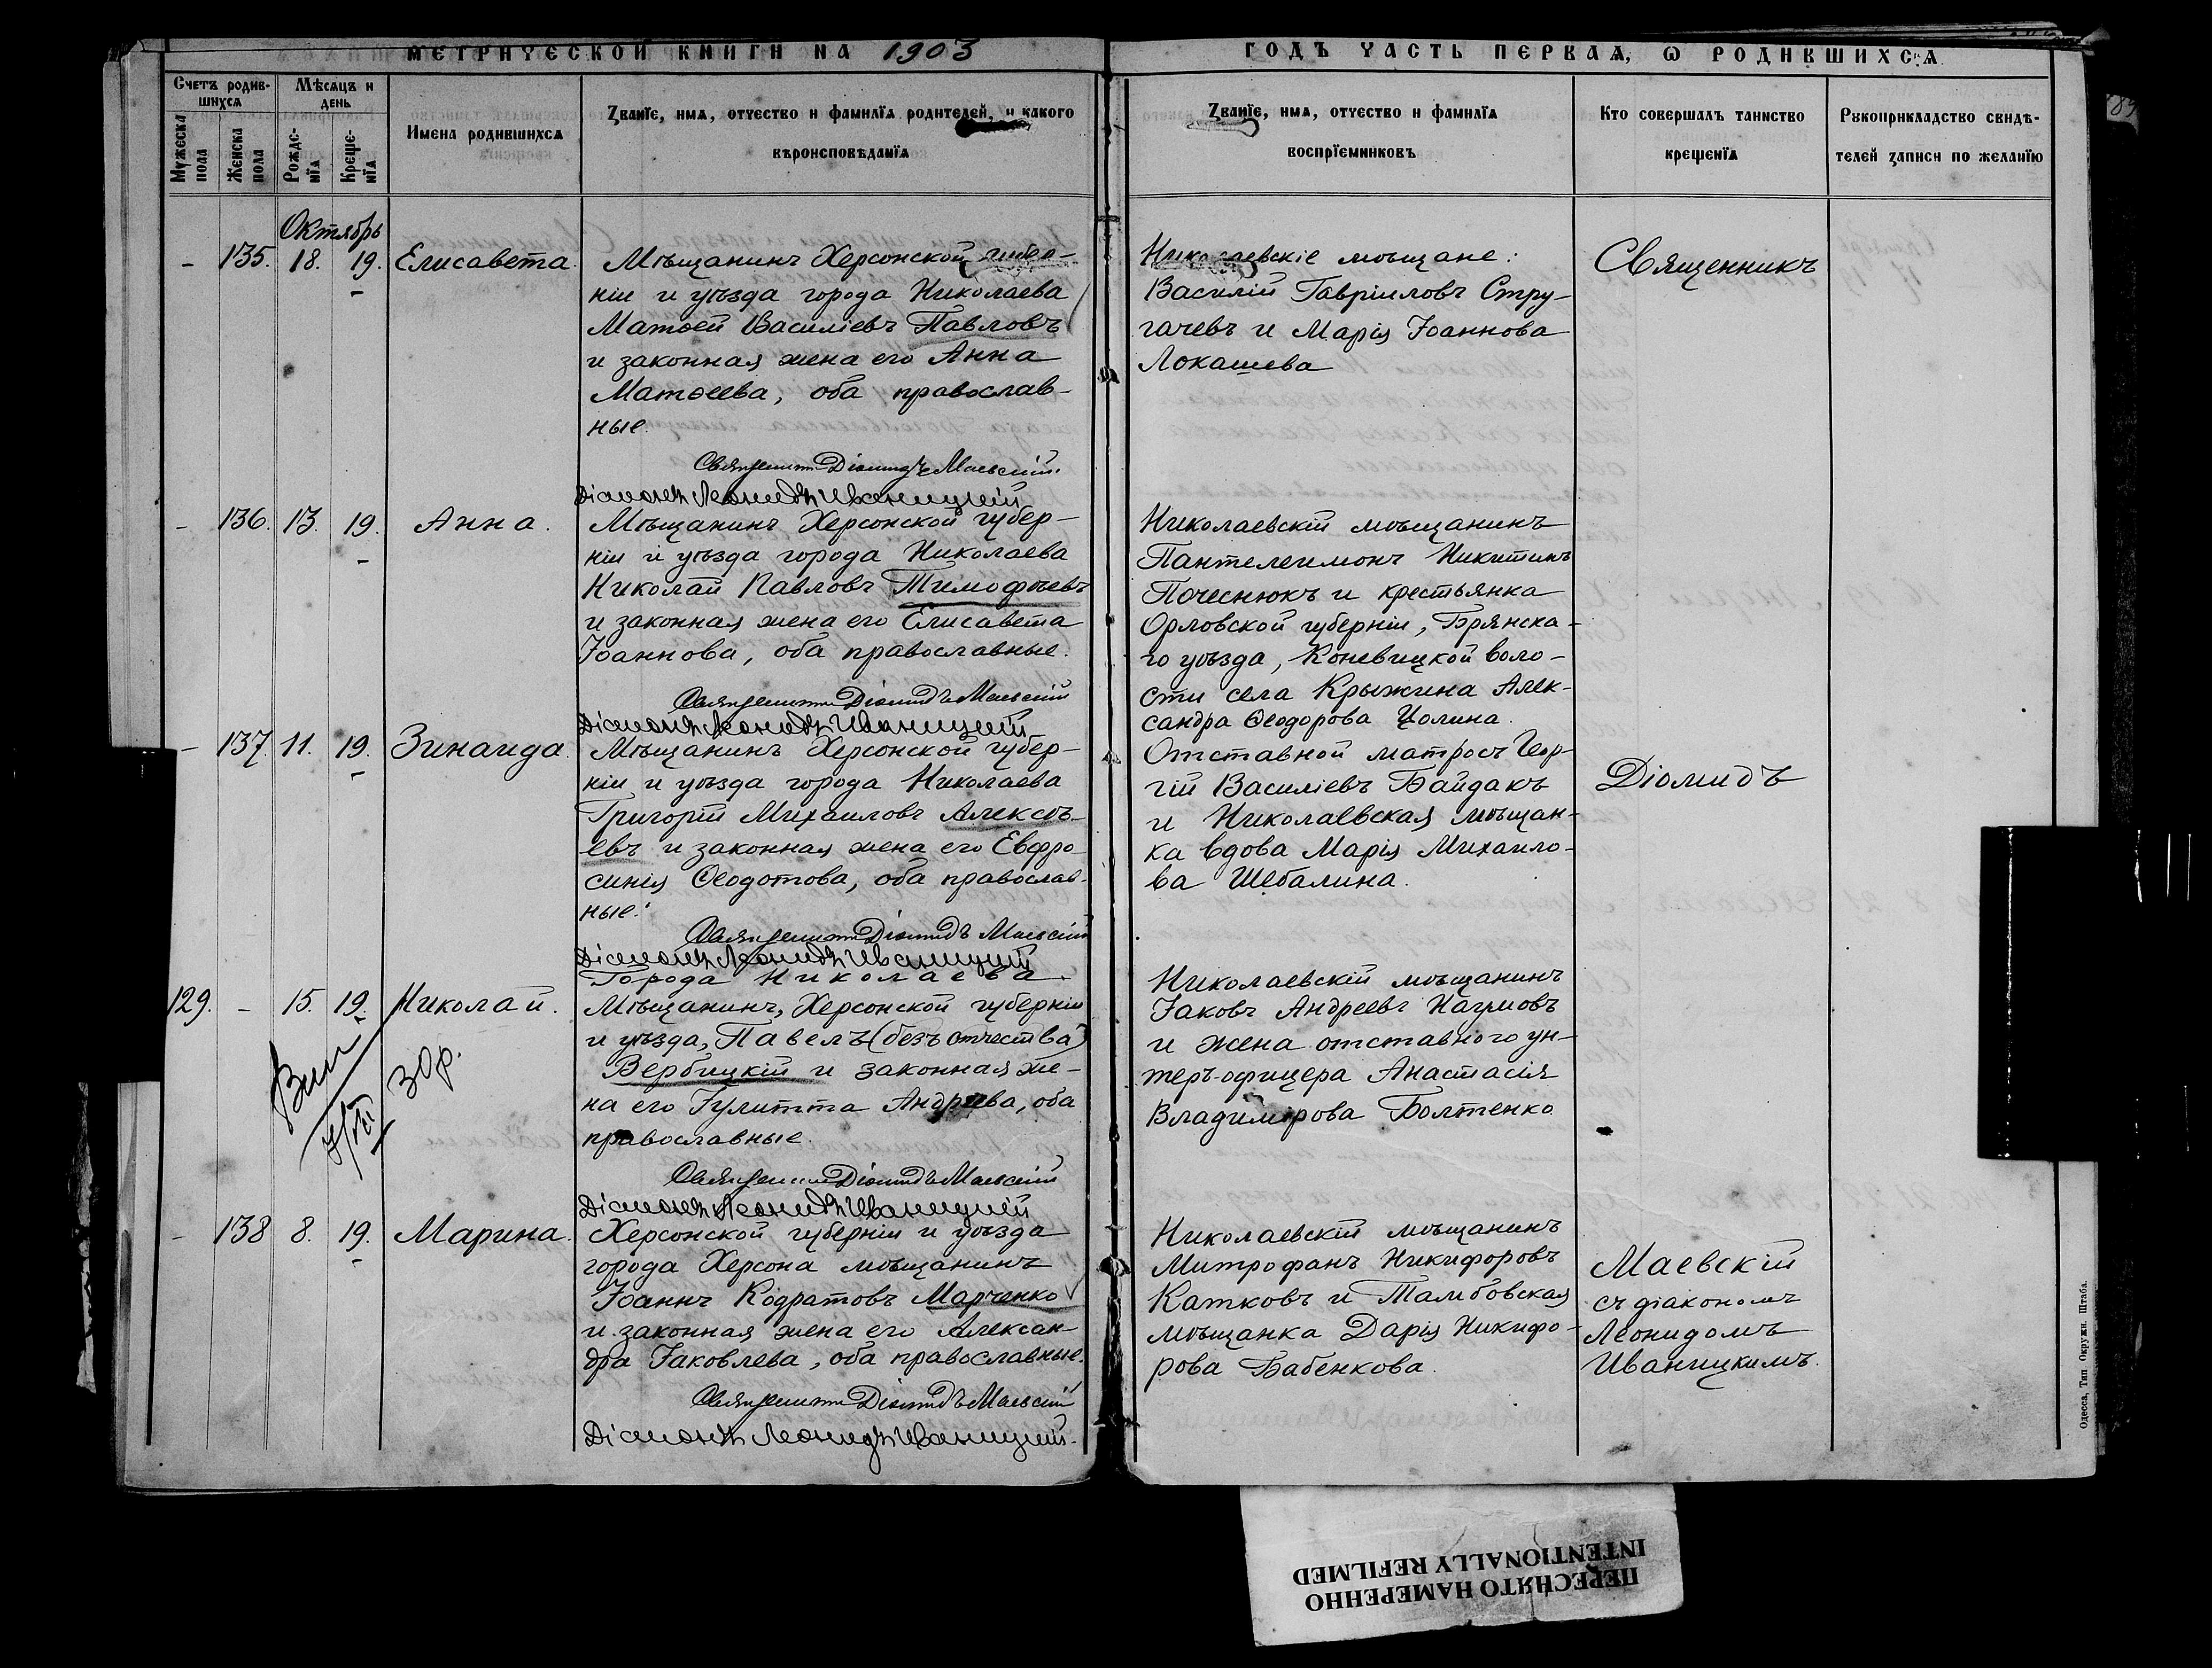 МЕТРИЧЕСКОЙ КНИГИ НА 1903
ГОДЪ ЧАСТЬ ПЕРВАѦ, Ѡ РОДИВШИХСѦ
Счетъ родив-
шихсѧ
Мѣсѧцъ и
день
Мужеска
пола
Женска
пола
Рожде-
нїѧ
Креще-
нїѧ
Имена родившихсѧ
Званїе, имѧ, отчество и фамилїѧ родителей, и какого
вѣроисповѣданїѧ
Званїе, имѧ, отчество и фамилїѧ
воспрїемниковъ
Кто совершалъ таинство
крещенїѧ
Рукоприкладство свидѣ-
телей записи по желанїю
Октябрь
- 135. 18. 19. Елисавета.
Мѣщанинъ Херсонской губер-
ніи и уѣзда города Николаева
Матѳей Василіевъ Павловъ
и законная жена его Анна
Матѳеева, оба православ-
ные.
Священникъ Діомидъ Маевскій.
Діаконъ Леонидъ Иваницкій
Николаевскіе мѣщане:
Василій Гавріиловъ Стру-
гачевъ и Марія Іоаннова
Локашева
Священникъ
- 136. 13. 19. Анна.
Мѣщанинъ Херсонской губер-
ніи и уѣзда города Николаева
Николай Павловъ Тимофѣевъ
и законная жена его Елисавета
Іоаннова, оба православные.
Священникъ Діомидъ Маевскій
Діаконъ Леонидъ Иваницкій
Николаевскій мѣщанинъ
Пантелеимонъ Никитинъ
Почеснюкъ и крестьянка
Орловской губерніи, Брянска-
го уѣзда, Коневицкой воло-
сти села Крыжина Алек-
сандра Ѳеодорова Цолина.
- 137. 11. 19. Зинаида.
Мѣщанинъ Херсонской губер-
ніи и уѣзда города Николаева
Григорій Михаиловъ Алексѣ-
евъ и законная жена его Евфро-
синія Ѳеодотова, оба православ-
ные.
Священникъ Діомидъ Маевскій
Діаконъ Леонидъ Иваницкій
Отставной матросъ Геор-
гій Василіевъ Байдакъ
и Николаевская мѣщан-
ка вдова Марія Михаило-
ва Шебалина.
Діомидъ
129. - 15. 19. Николай.
Города Николаева
Мѣщанинъ, Херсонской губерніи
и уѣзда, Павелъ (безъ отчества)
Вербицкій и законная же-
на его Іулитта Андреева, оба
православные.
Священникъ Діомидъ Маевскій
Діаконъ Леонидъ Иваницкій
Николаевскій мѣщанинъ
Іаковъ Андреевъ Наумовъ
и жена отставного ун-
теръ-офицера Анастасія
Владимірова Болтенко
30 р.
- 138 8. 19. Марина.
Херсонской губерніи и уѣзда
города Херсона мѣщанинъ
Іоаннъ Кодратовъ Марченко
и законная жена его Алексан-
дра Іаковлева, оба православные.
Священникъ Діомидъ Маевскій
Діаконъ Леонидъ Иваницкій.
Николаевскій мѣщанинъ
Митрофанъ Никифоровъ
Катковъ и Тамбовская
мѣщанка Дарія Никифо-
рова Бабенкова.
Маевскій
съ діакономъ
Леонидомъ
Иваницкимъ.
Одесса, Тип. Окружн. Штаба.
ПЕРЕСНЯТО НАМЕРЕННО
INTENTIONALLY REFILMED